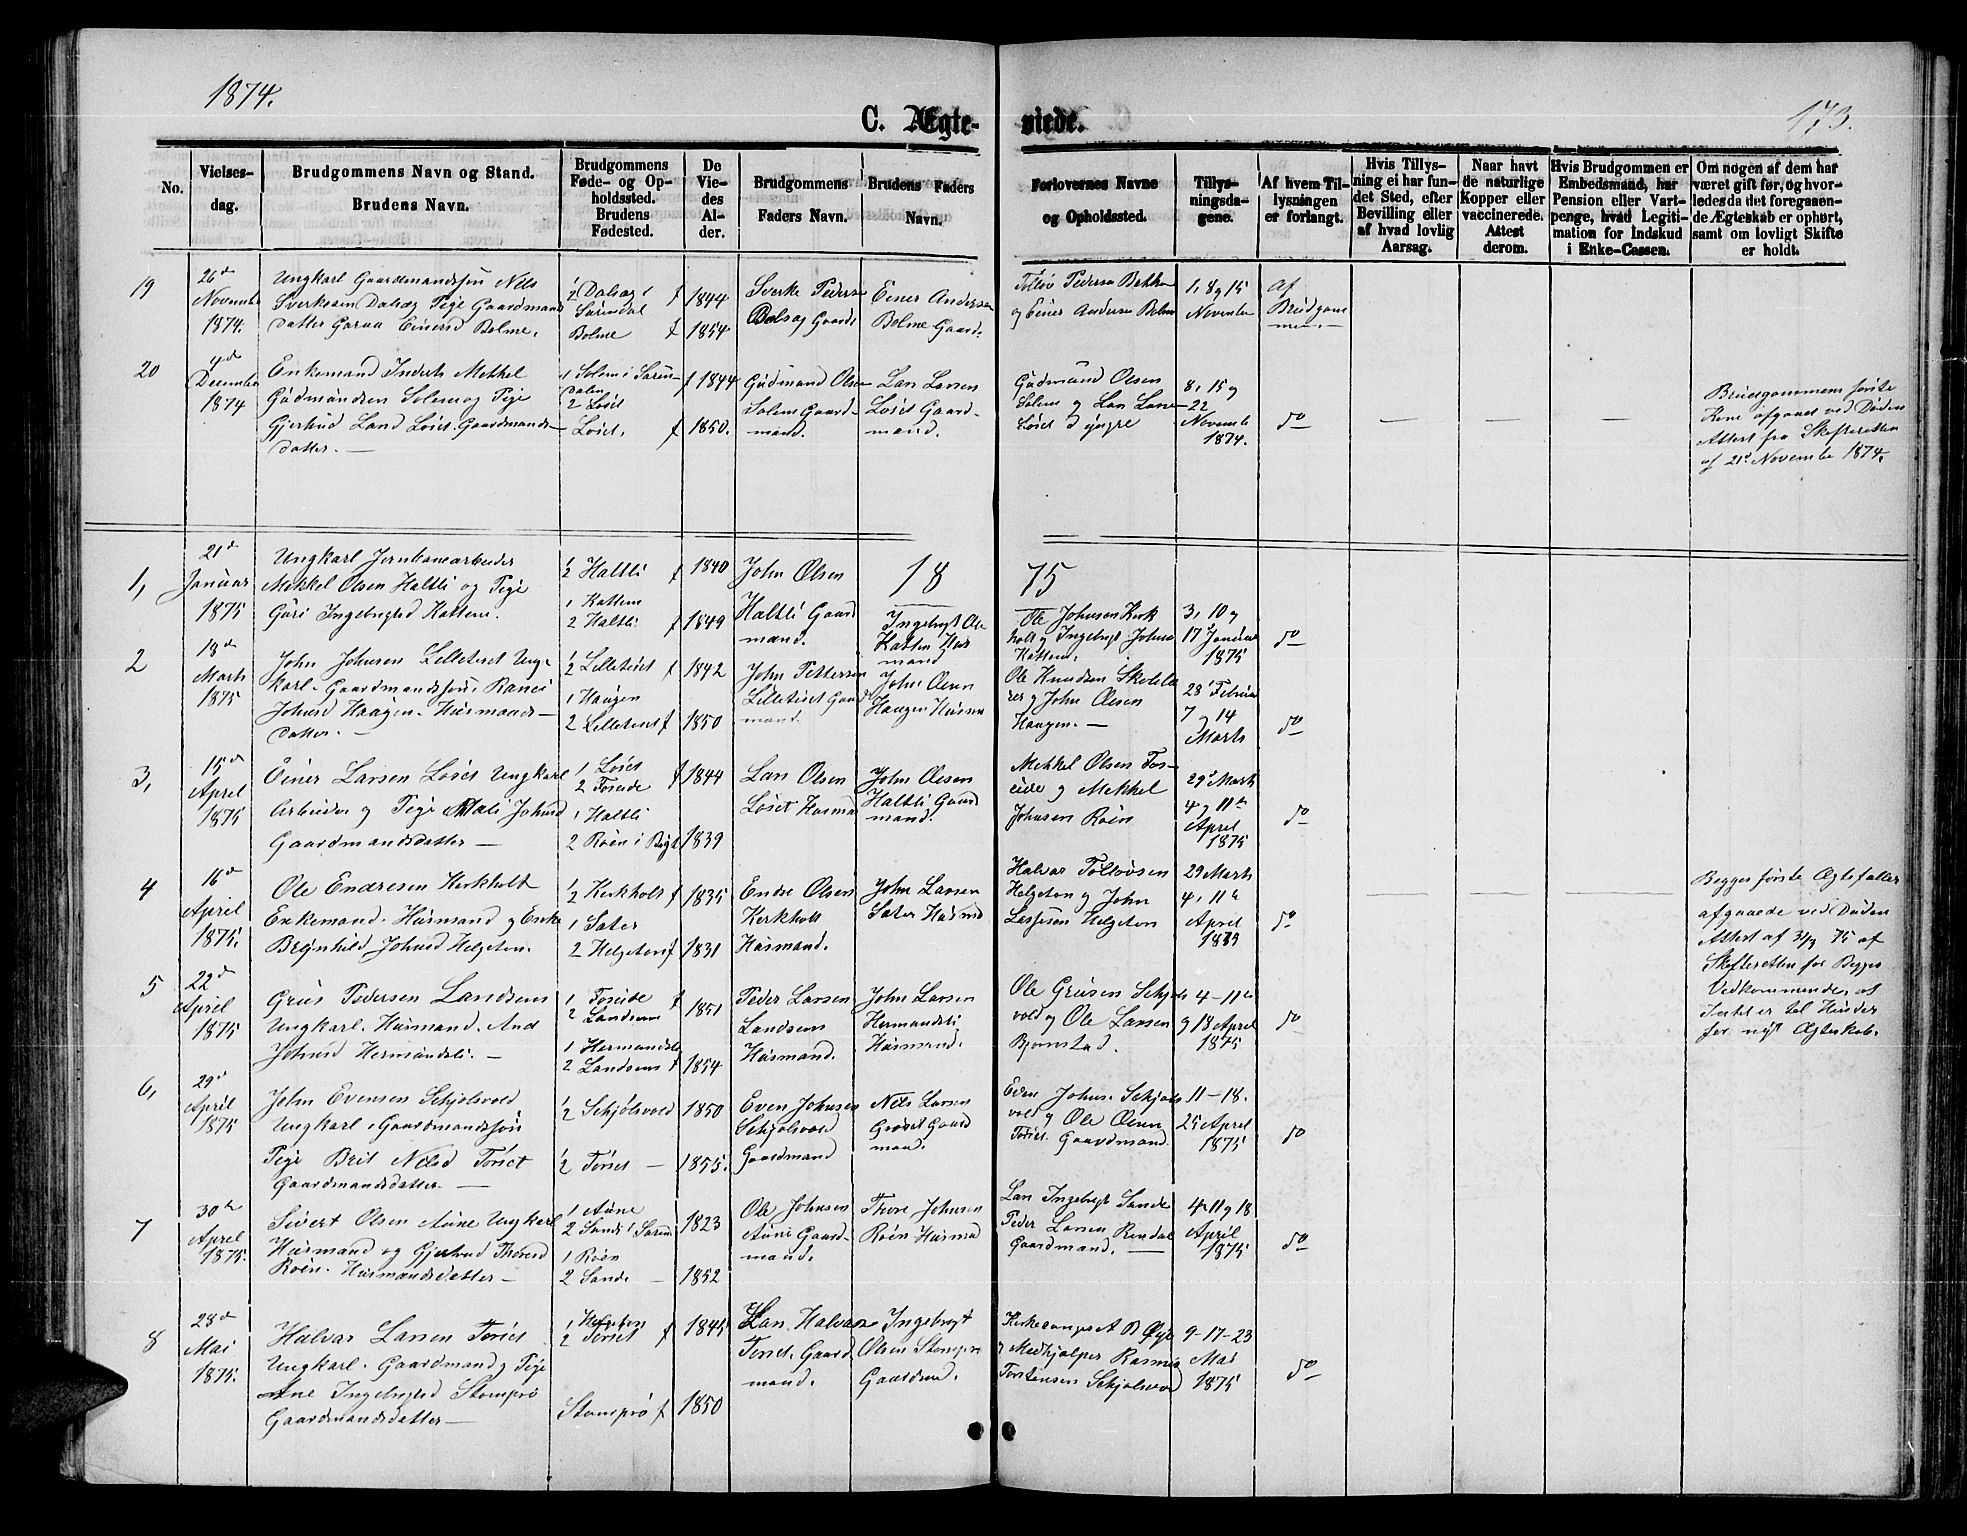 1874.
173.
C. Ægteviede.
No.
Vielsesdag.
Brudgommens Navn og Stand.
Brudens Navn.
Brudgommens Føde- og Opholdssted.
Brudens Fødested.
De Viedes Alder.
Brudgommens Faders Navn.
Brudens Faders Navn.
Forlovernes Navne og Opholdssted.
Tillysningsdagene.
Af hvem Tillysningen er forlangt.
Hvis Tillysning ei har fundet Sted, efter Bevilling eller af hvad lovlig Aarsag.
Naar havt de naturlige Kopper eller vaccinerede. Attest derom.
Hvis Brudgommen er Embedsmand, har Pension eller Vartpenge, hvad Legitimation for Indskud i Enke-Cassen.
Om nogen af dem har været gift før, og hvorledes da det foregaaende Ægteskab er ophørt, samt om lovligt Skifte er holdt.
19
26de
Novembe
1874.
Ungkarl Gaardmandssøn Nils
Sverkesen Dalsæg Pige Gaardmand
datter Einersd Bolme.
Bolme
1844
1854.
Sverke Pederse
Gaard
Einer Andersen
Bolme Gaard
Pedersen Bekken
og Einer Andersen Bolme
1, 8 og 15
Novembe
Af
Brudgom
men.
20
4de
Decembe
1874
Enkemand Inderst Mekkel
Gudmundsen Solem og Pige
Gjertrud Larsd Løset Gaardmands-
datter. —
1 Solem i Suren-
dalen
2 Løset
Løset.
1844
1850.
Gudmund Olsen
Solem Gaard-
mand.
Lars Larsen
Løset Gaard-
mand.
Gudmund Olsen
Solem og Lars Larse
Løset d yngre
8, 15 og
22
Novembe
1874.
do
Brudegommens første
Kone afgaaet ved Døden
Attest fra Skifteretten
af 21de Novembe 1874.
1875
1,
21de
Januar
1875
Ungkarl Jernbanearbeider
Mekkel Olsen Haltli og Pige
Guri Ingebrigtsd Kattem.
1/2 Haltli
1 Kattem
2 Haltli
1840
1849
John Olsen
Haltli Gaard
mand.
Ingebrigt Ole
Kattem Hus
mand
Ole Johnsen Kirk
holt og Ingebrigt Johnse
Kattem.
3, 10 og
17de Januar
1875
do
2
18de
Marts
1875
John Johnsen Lilletøset Ung-
karl. Gaardmandssøn,
Johnsd Haugen. Husmands-
datter. —
1/2 Lilletøset
1 Haugen
2 Lilletøset
1842
1850
John Pettersen
Lilletøset Gaard
mand.
John Olsen
Haugen Husm
Ole Knudsen Skolelæ
rer og John Olesen
Haugen. —
28de Februar
7 og 14
Marts
do
3,
15de
April
1875
Einer Larsen Løset Ungkarl
Arbeider og Pige Mali Johnsd
Gaardmandsdatter —
1 Løset
2 Foseide
1 Haltli
2 Røen i Bøgt
1844
1839
Lars Olsen
Løset Husma
John Olesen
Haltli Gaard
mand.
Mekkel Olsen Fos-
eide og Mekkel
Johnsen Røen
29de Marts
4 og 11te
April
1875
do
4
16de
April
1875.
Ole Endresen Kirkholt
Enkemand. Husmand og Enke
Brynhild Johnsd Helgeton.
1/2 Kirkholt
1 Sæter
2 Helgeton
1835
1831
Endre Olsen
Kirkholt
Husmand.
John Larsen
Sæter Husmd
Halvar Tollevsen
Helgeton og John
Helgeton
29 Marts
4, 11te
April
1875
do
Begges første Ægtefæller
afgaaede ved Døden
Attest af 31/3 75 af
Skifteretten for Begges
Vedkommende, at
Intet er til Hinder
for nyt Ægteskab.
5
22de
April
1875
Pedersen Landsem
Ungkarl. Husmand. And
Johnsd Hermandsli. —
1 Foseide
2 Landsem
1 Hermandsli
2 Landsem
1851
1854
Peder Larsen
Landsem
Husmand.
John Larsen
Hermandsli
Husmand.
Ole Skjøls
vold og Ole Larsen
Bjørnstad.
4-11te
og 18 April
1875
do
6,
29de
April
1875
John Evensen Skjølsvold
Ungkarl, Gaardmandssøn
Pige Brit Nilsd Tøset
Gaardmandsdatter. —
1/2 Skjølsvold
1/2 Tøset —
1850
1855.
Even Johnsen
Skjølsvold
Gaardmand
Nils Larsen
Gaard
mand.
Even Johns. Skjøls
vold og Ole Olsen
Tøset. Gaardmand
11-18.
25 April
1875
do
7
30te
April
1875.
Sivert Olsen Aune Ungkarl
Husmand og Gjertrud Thoresd
Røen. Husmandsdatter —
1 Aune
2 Sande i Suren
1 Røen
2 Sande —
1823
1852
Ole Johnsen
Aune Gaard-
mand.
Thore Johnsen
Røen Husmd
Lars Ingebrigt Sande
Peder Larsen Rendal
Gaardmand. —
4-11 og 18
April
1875
do
8
28de
Mai
1875.
Halvar Larsen Tøset
Ungkarl. Gaardmand og Pige
Ane Ingebrigtsd Stomprø
Gaardmandsdatter —
1 Helgeton
2 Tøset
Stomprø
1845
1850
Lars Halvars
Tøset. Gaard
mand.
Ingebrigt
Olsen Stomprø
Gaardmd.
Kirkesanger A B Øye
og Medhjælper Rasmus
Torstensen Skjølsvold
9-17-23
Mai
1875
do